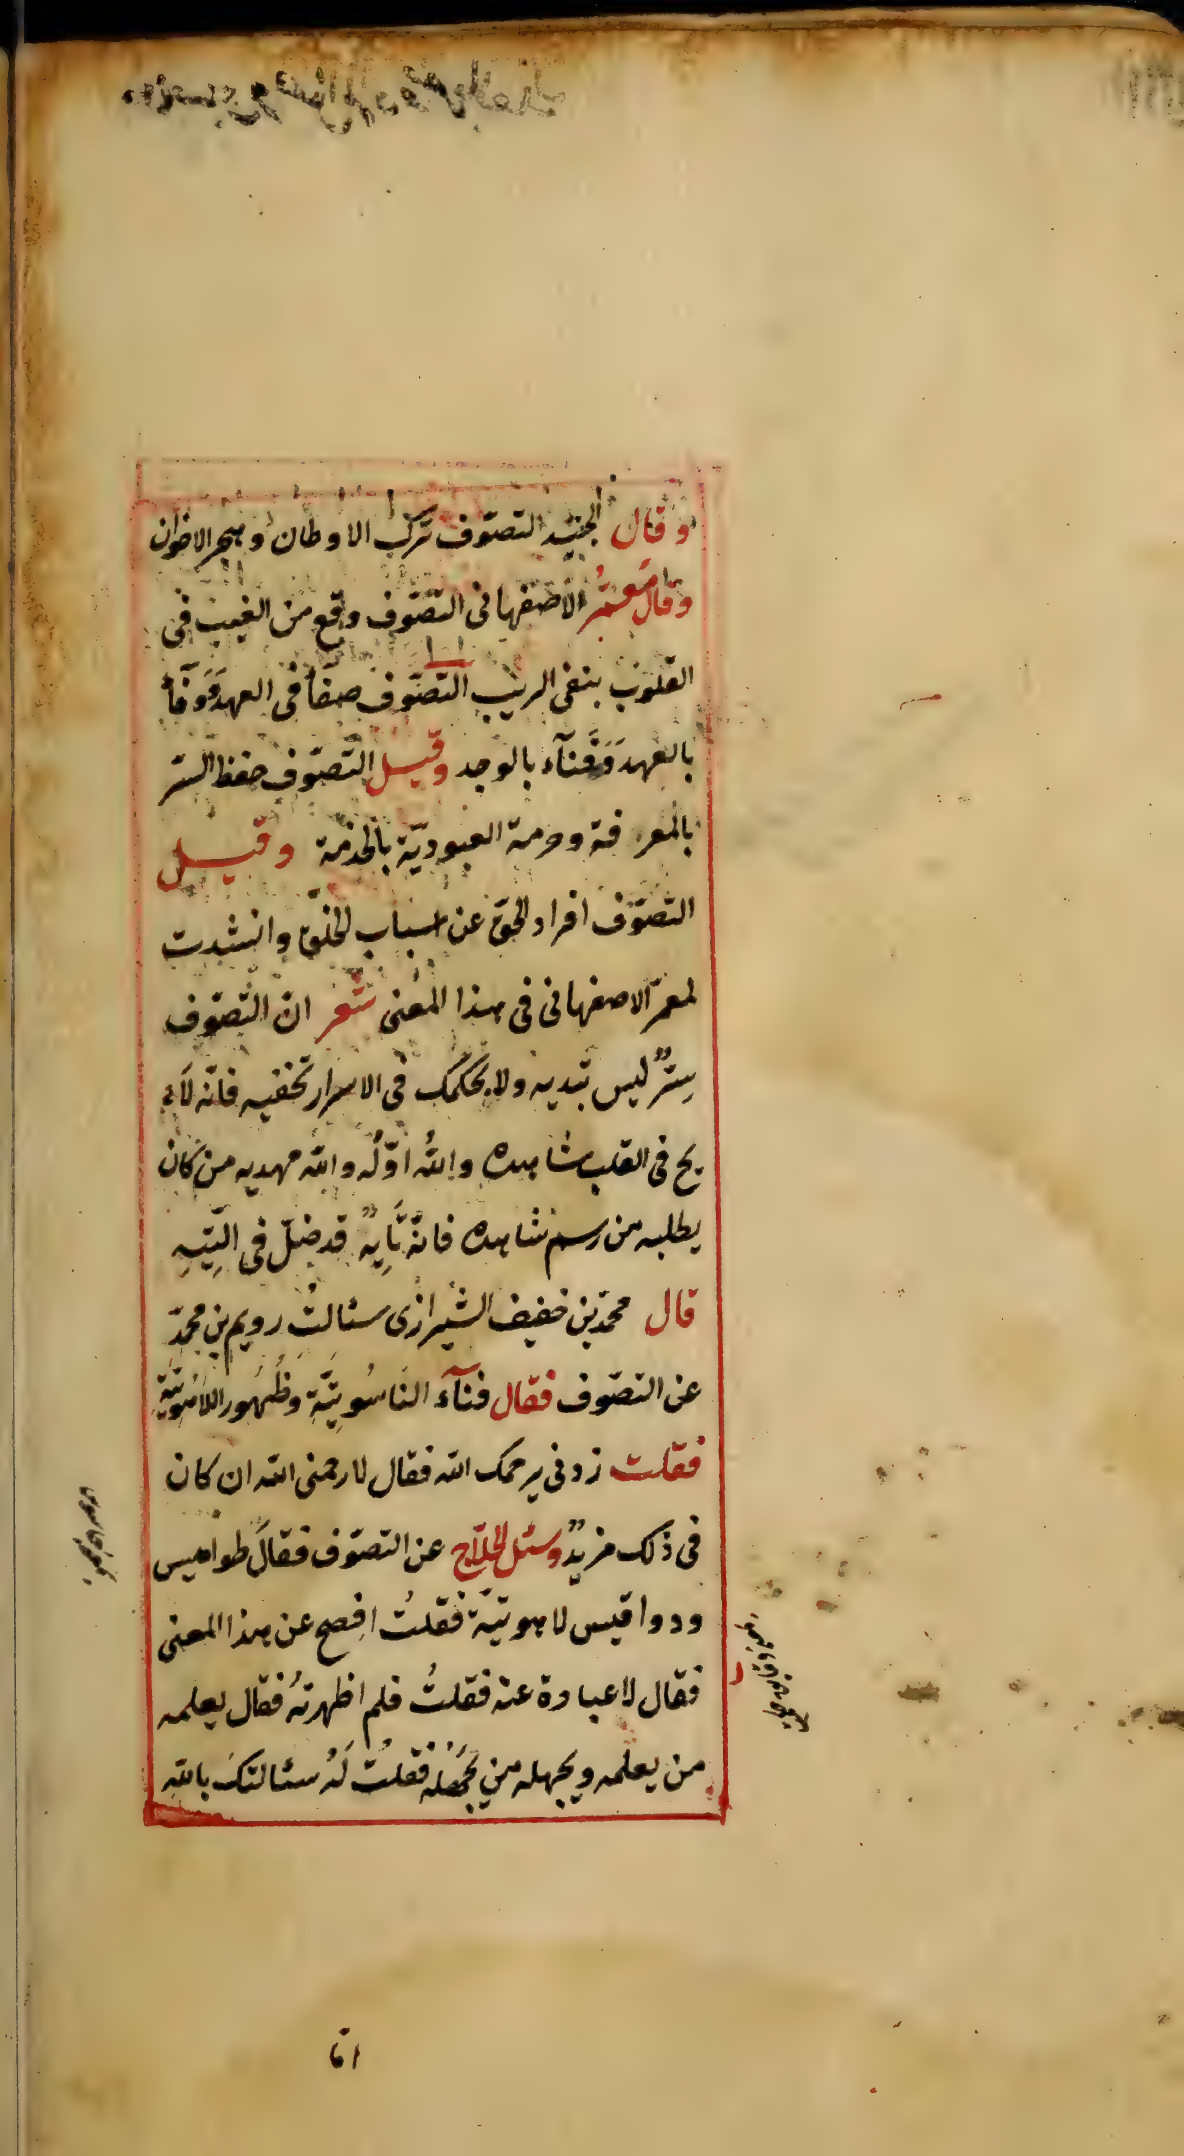 وقال الجنيد التصوّف ترك الاوطان وهجر الاخوان
وقال معمر الاصفهانى التصّوف واقع من الغيب فى
القلوب ينفى الريب التصّوف صفآء فى العهد ووفآء
بالعهد وفنآء بالوجد وقيل التّصوّف حفظ السّر
بالمعرفة وحرمة العبوديّة بالخدمة وقيل
التصوّف افراد الحقّ عن اسباب الخلق وانشدت
لمعمر الاصفهانى فى هذا المعنى شعر انّ التّصوّف
سِرٌّ ليس تبديه ولا يحكمك فى الاسرار تخفيه فانّه لَاءِ
يح فى القلب شاهده واللهُ اوّلُه والله مهديه من كان
يطلبه من رسم شاهده فانّه تَايِهٌ قد ضلّ فى التِيّهِ
قال محمّد بن خفيف الشيرازى سئالتُ رويم بن محمّد
عن التصّوف فقال فنآء الناسُوتِيَّةِ وظُهور اللاهُوتيّةِ
فقلت زدنى يرحمك الله فقال لا رحمنى الله ان كان
فى ذلك مزيدٌ وسئل الحلّاج عن التصوّف فقالَ طواميس
ودوا قيس لاهوتيّة فقلتُ افِصح عن هذا المعنى
فقال لا عبارة عنه فقلتُ فلم اظهرتهُ فقال يعلمه
من يعلمه ويجهله من يجهله فقلت لَهُ سئالتك باللهِ